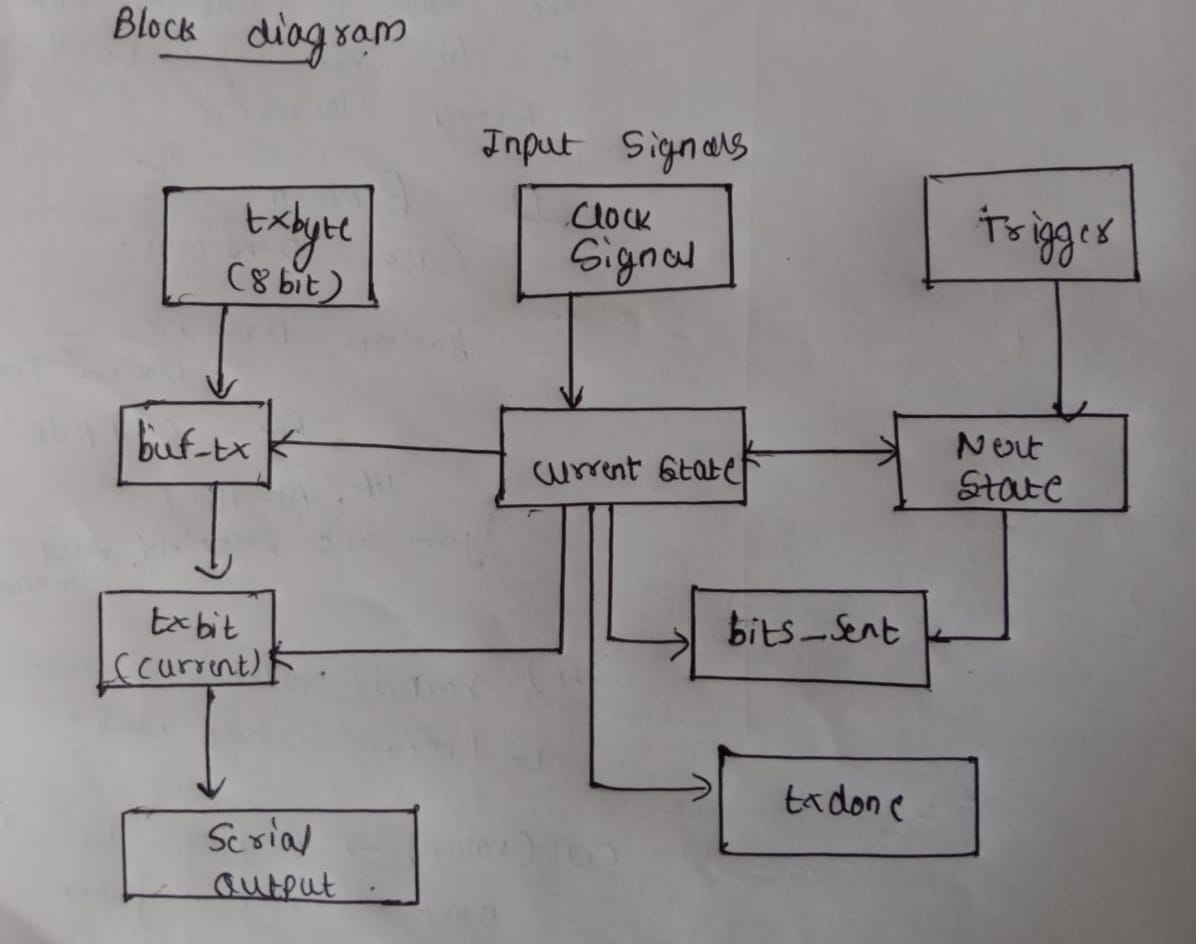 Block diagram
Input Signals
txbyte
(8 bit)
Clock
Signal
Trigger
buf-tx
current State
Next
State
txbit
(current)
bits_sent
txdone
Serial
output